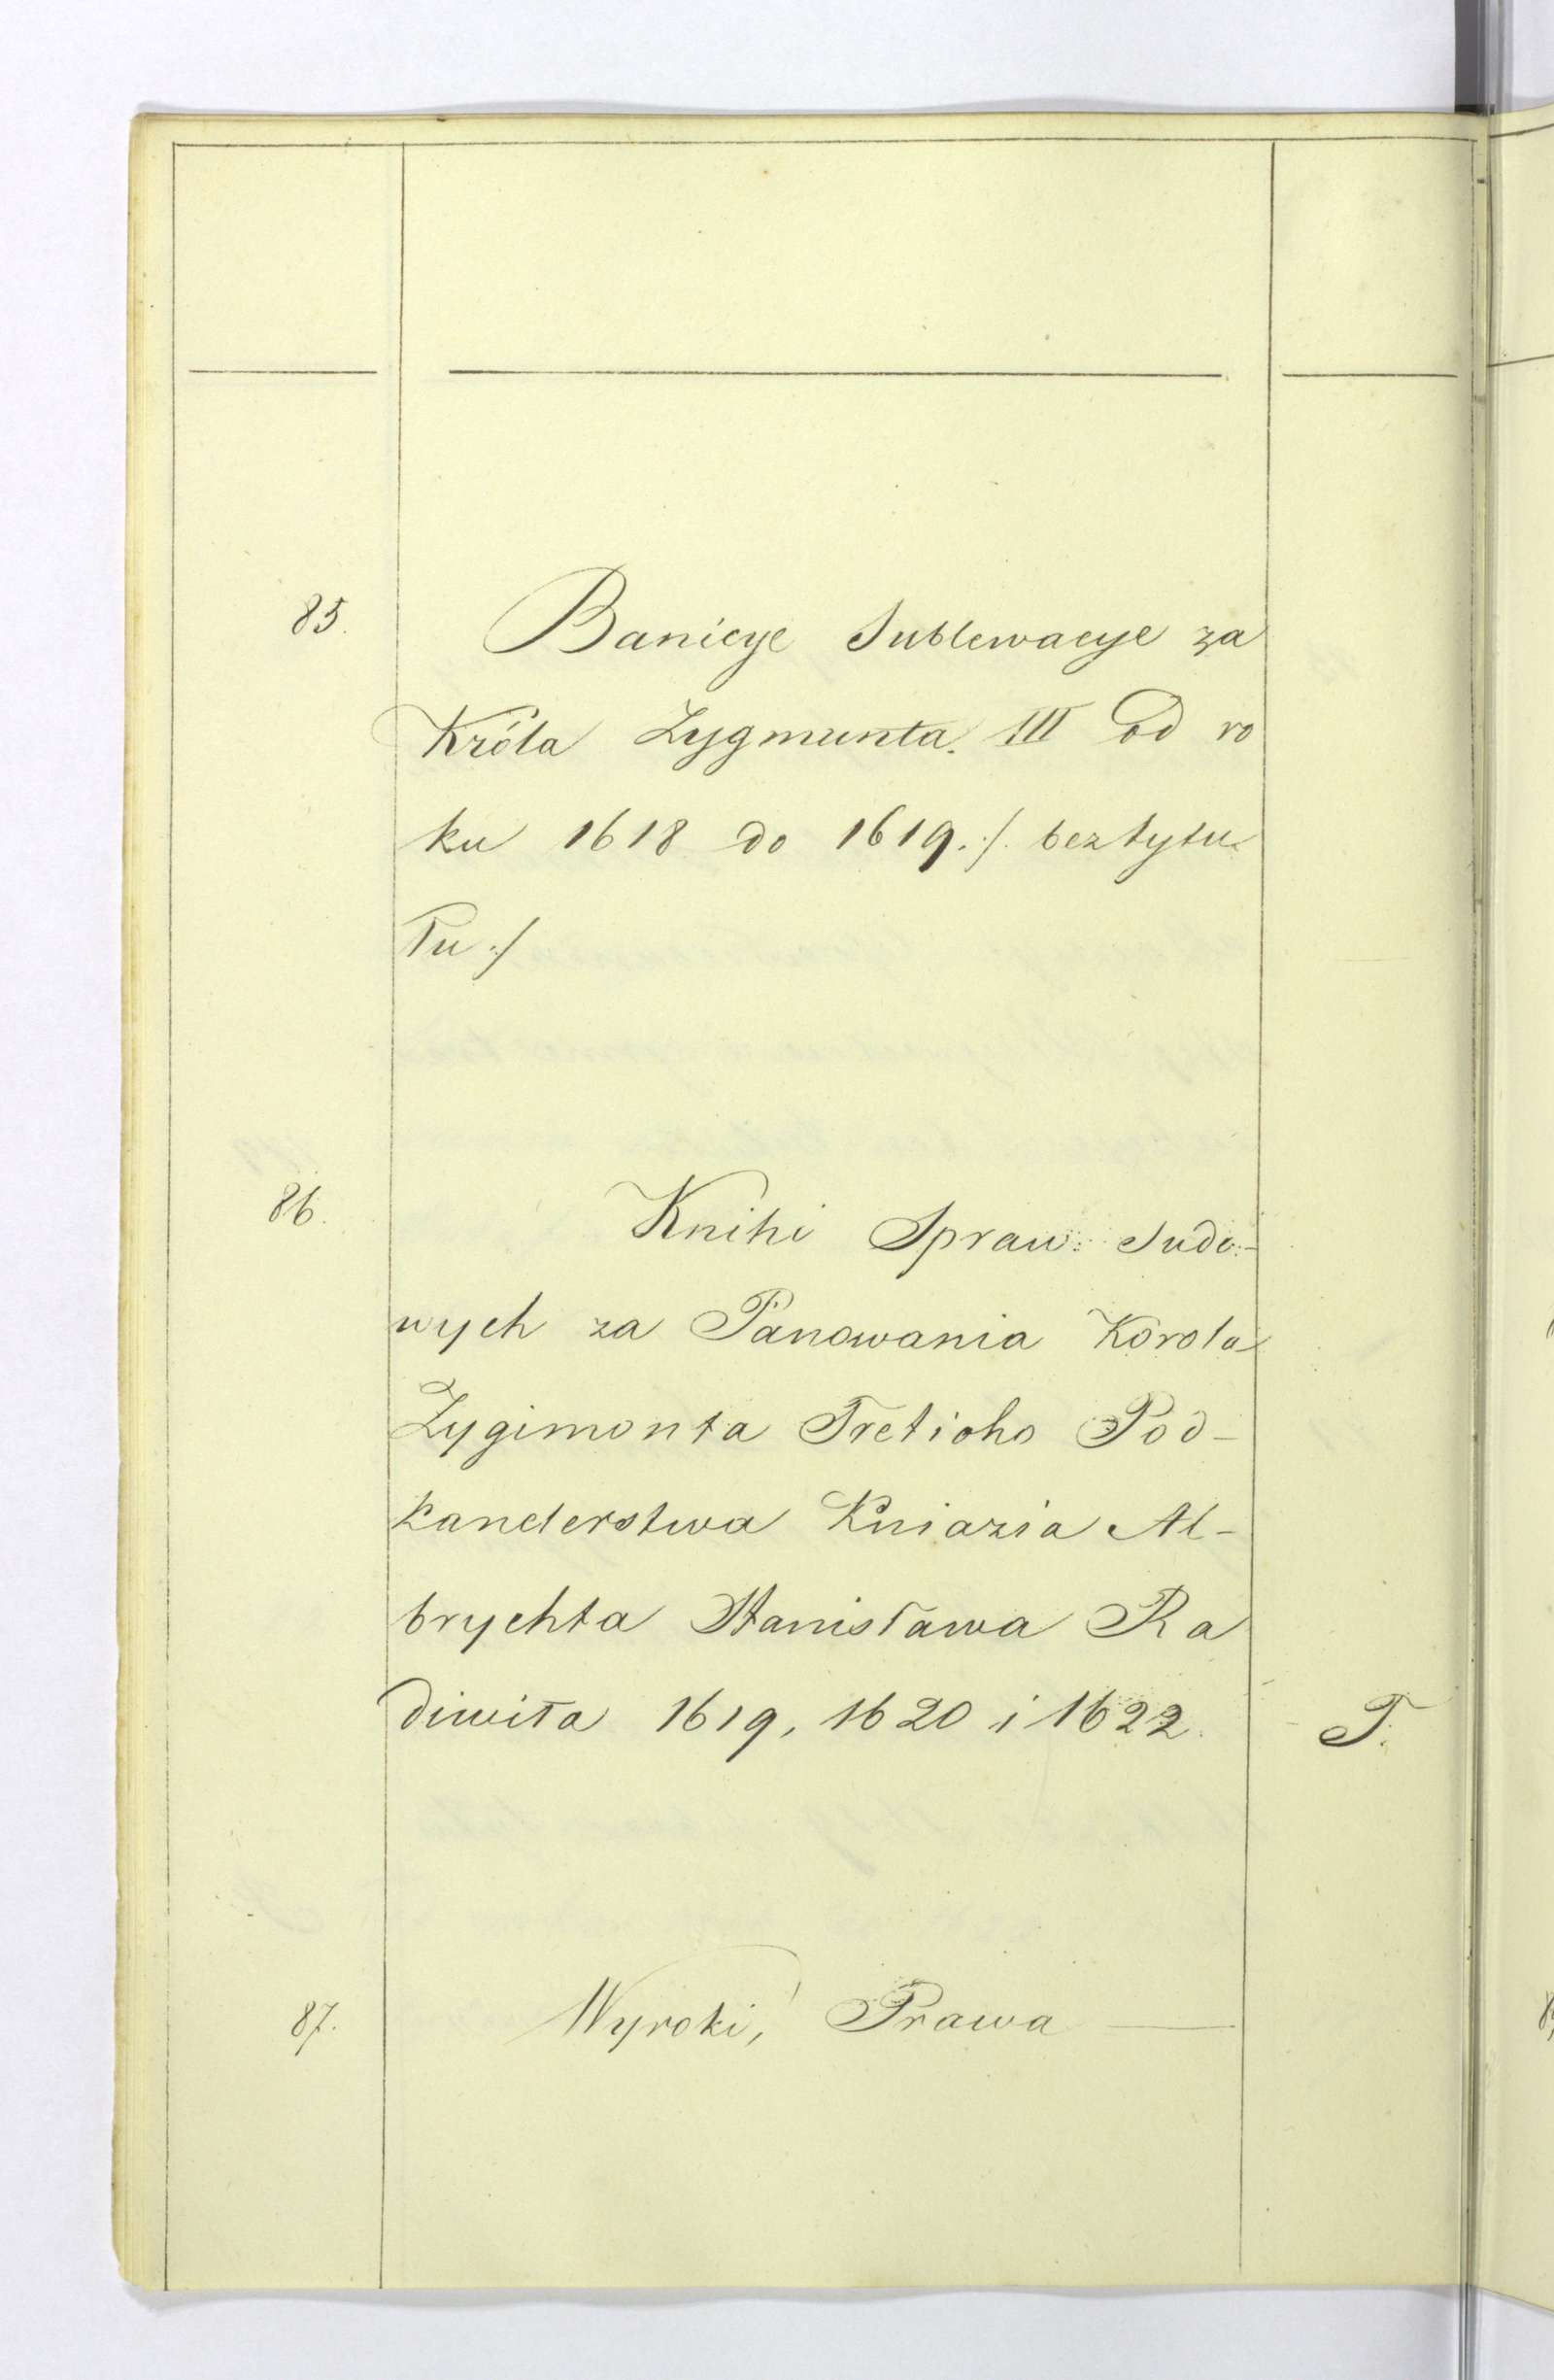 85. Banicye Sublewacye za
Króla Zygmunta III od ro
ku 1618 do 1619. /. bez tytu
łu ./
86. Knihi Spraw Sudo-
wych za Panowania Korola
Zygimonta Tretioho Pod-
kanclerstwa Kniazia Al-
brychta Stanisława Ra
diwiła 1619, 1620 i 1622. T.
87. Wyroki, Prawa —